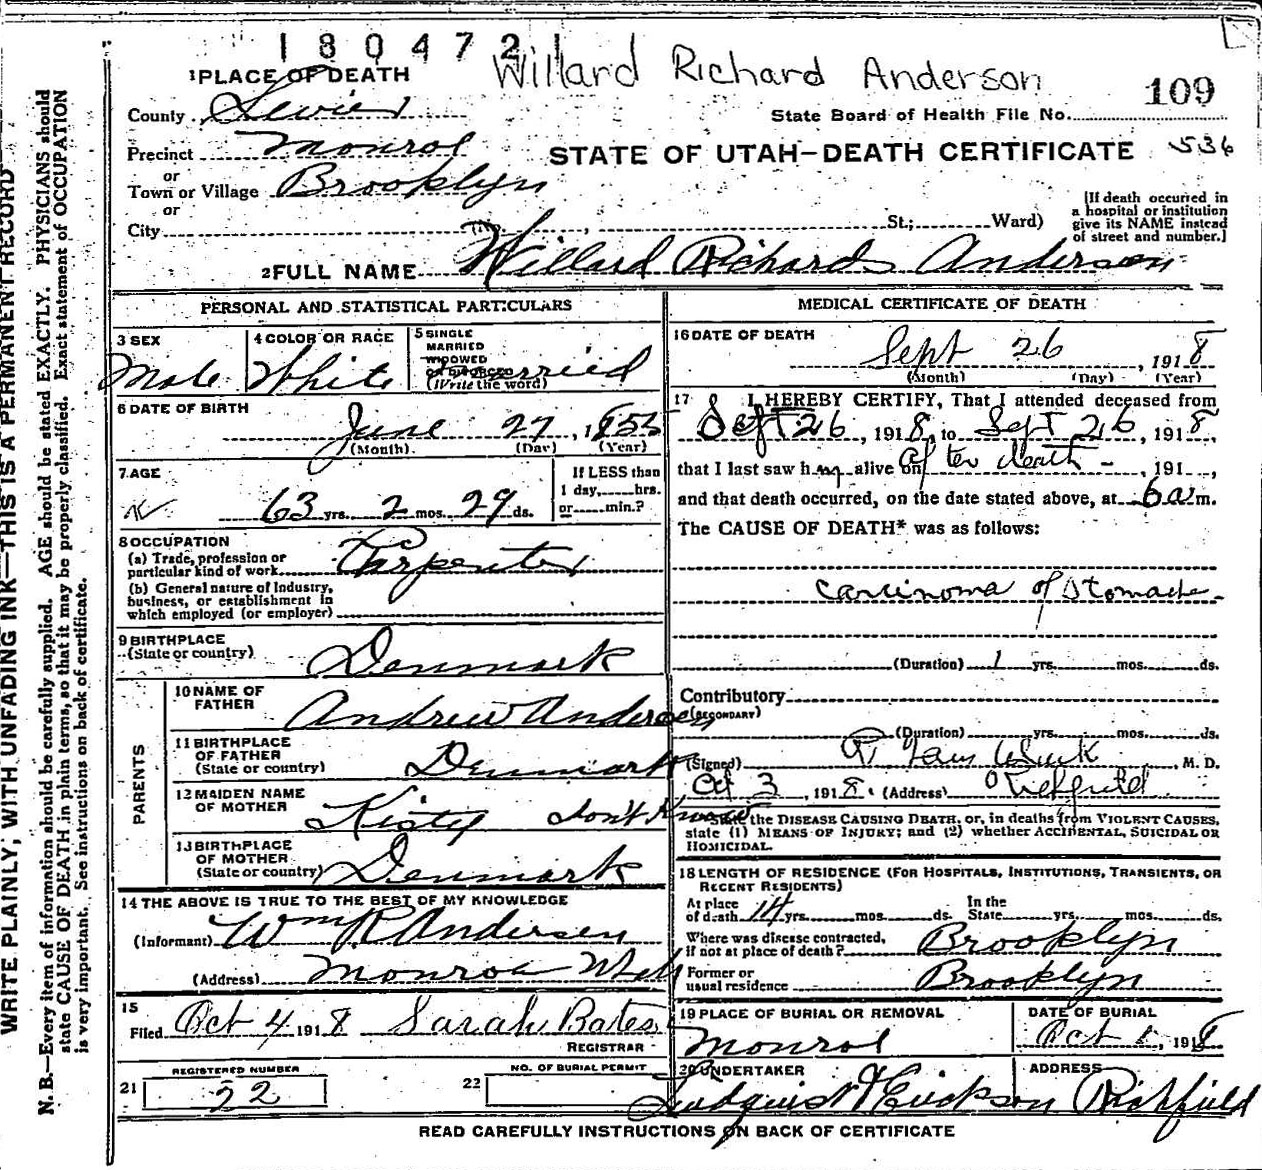 1 8 0 4 7 2 1
Willard Richard Anderson
109
1 PLACE OF DEATH
County Sevier
State Board of Health File No.
Precinct Monroe
STATE OF UTAH—DEATH CERTIFICATE 536
or
Town or Village Brooklyn
or
City St.; Ward)
[If death occurred in
a hospital or institution
give its NAME instead
of street and number.]
2 FULL NAME Willard Richards Anderson
PERSONAL AND STATISTICAL PARTICULARS
3 SEX
Male
4 COLOR OR RACE
White
5 SINGLE
MARRIED
WIDOWED
OR DIVORCED
(Write the word)
Married
6 DATE OF BIRTH
June 27, 1855
(Month) (Day) (Year)
7 AGE
63 yrs. 2 mos. 29 ds.
If LESS than
1 day, hrs.
or min.?
8 OCCUPATION
(a) Trade, profession or
particular kind of work Carpenter
(b) General nature of Industry,
business, or establishment in
which employed (or employer)
9 BIRTHPLACE
(State or country) Denmark
PARENTS
10 NAME OF
FATHER Andrew Andersen
11 BIRTHPLACE
OF FATHER
(State or country) Denmark
12 MAIDEN NAME
OF MOTHER Kisty don't Know
13 BIRTHPLACE
OF MOTHER
(State or country) Denmark
14 THE ABOVE IS TRUE TO THE BEST OF MY KNOWLEDGE
(Informant) Wm R Andersen
(Address) Monroe Utah
15
Filed Oct 4 1918 Sarah Bates
REGISTRAR
REGISTERED NUMBER
21 22
NO. OF BURIAL PERMIT
22
MEDICAL CERTIFICATE OF DEATH
16 DATE OF DEATH
Sept 26, 1918
(Month) (Day) (Year)
17 I HEREBY CERTIFY, That I attended deceased from
Sept 26, 1918, to Sept 26, 1918,
that I last saw him alive on after death, 191 ,
and that death occurred, on the date stated above, at 6 a m.
The CAUSE OF DEATH* was as follows:
Carcinoma of Stomach
(Duration) 1 yrs. mos. ds.
Contributory
(SECONDARY)
(Duration) yrs. mos. ds.
(Signed) M. D.
Oct 3, 1918. (Address) Richfield
*State the DISEASE CAUSING DEATH, or, in deaths from VIOLENT CAUSES,
state (1) MEANS OF INJURY; and (2) whether ACCIDENTAL, SUICIDAL OR
HOMICIDAL.
18 LENGTH OF RESIDENCE (FOR HOSPITALS, INSTITUTIONS, TRANSIENTS, OR
RECENT RESIDENTS)
At place
of death 14 yrs. mos. ds.
In the
State yrs. mos. ds.
Where was disease contracted,
if not at place of death? Brooklyn
Former or
usual residence Brooklyn
19 PLACE OF BURIAL OR REMOVAL
Monroe
DATE OF BURIAL
Oct 1, 1918
20 UNDERTAKER
Erickson
ADDRESS
Richfield
READ CAREFULLY INSTRUCTIONS ON BACK OF CERTIFICATE
WRITE PLAINLY, WITH UNFADING INK—THIS IS A PERMANENT RECORD
N. B.—Every item of information should be carefully supplied. AGE should be stated EXACTLY. PHYSICIANS should
state CAUSE OF DEATH in plain terms, so that it may be properly classified. Exact statement of OCCUPATION
is very important. See instructions on back of certificate.